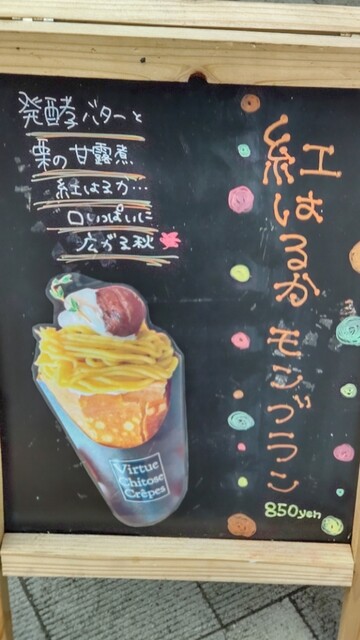 紅はるかモンブラン
850yen
発酵バターと
栗の甘露煮
紅はるか…
口いっぱいに
広がる秋
Virtue
Chitose
Crêpes